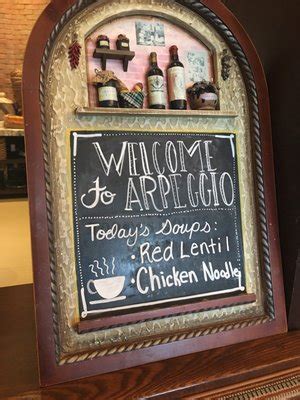 WELCOME
to ARPEGGIO
Today's Soups:
• Red Lentil
• Chicken Noodle